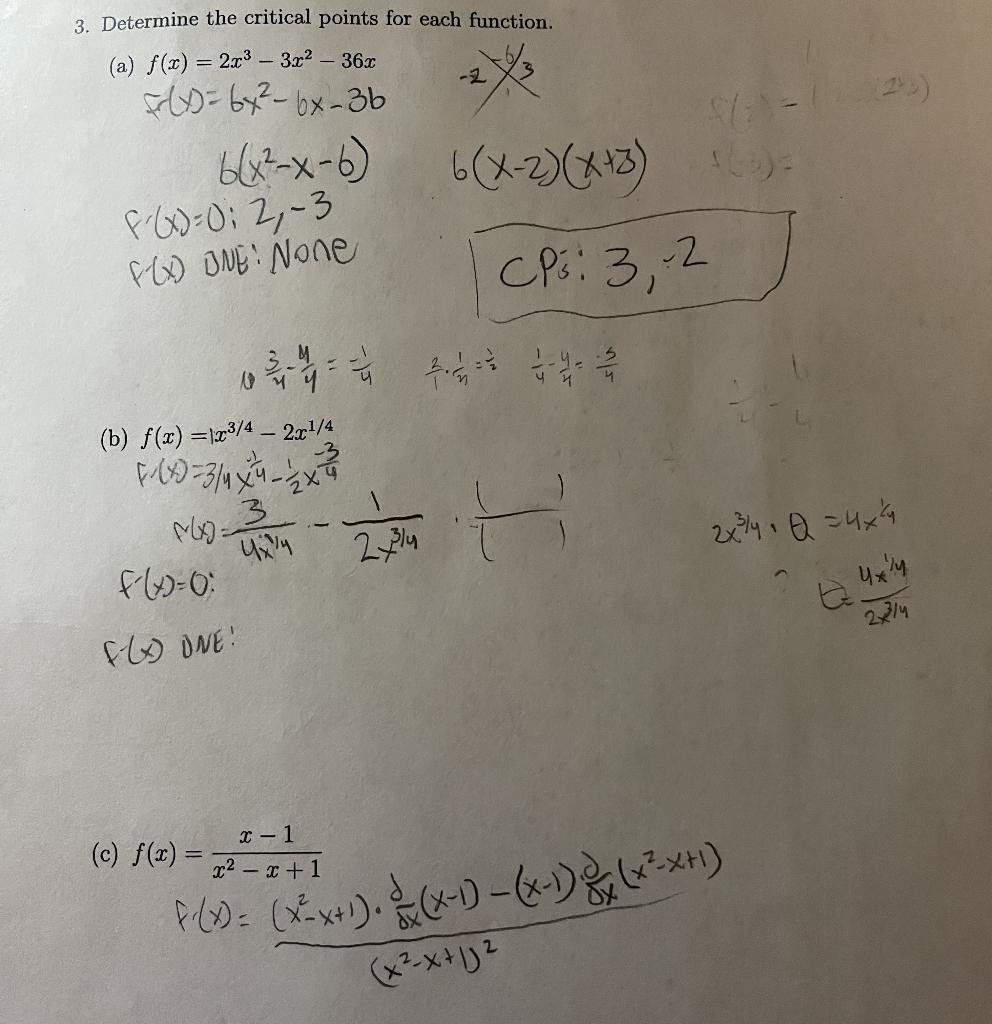 3. Determine the critical points for each function.
(a) f(x) = 2x³ − 3x² − 36x
-6
-2 3
1
f'(x) = 6x² - 6x - 36
6(x²-x-6) 6(x-2)(x+3)
f'(x)=0: 2, -3
f'(x) DNE: None
CPs: 3, -2
3/4 - 4/4 = -1/4 2/1 · 1/4 = 1/2 1/4 - 4/4 = -3/4
(b) f(x) = 1x^{3/4} − 2x^{1/4}
f'(x) = 3/4 x^{-1/4} - 1/2 x^{-3/4}
f'(x) = 3/(4x^{1/4}) - 1/(2x^{3/4}) · ( )/( )
2x^{3/4} · θ = 4x^{1/4}
θ = 4x^{1/4}/(2x^{3/4})
f'(x)=0:
f'(x) DNE:
(c) f(x) = (x − 1)/(x² − x + 1)
f'(x) = ((x²-x+1) · d/dx (x-1) - (x-1) · d/dx (x²-x+1))/(x²-x+1)²